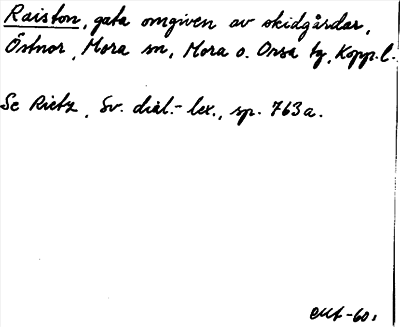 Raiston, gata omgiven av skidgårdar,
Östnor, Mora sn, Mora o. Orsa tg, Kopp.l.
Se Rietz, Sv. dial.-lex., sp. 763a.
-60.